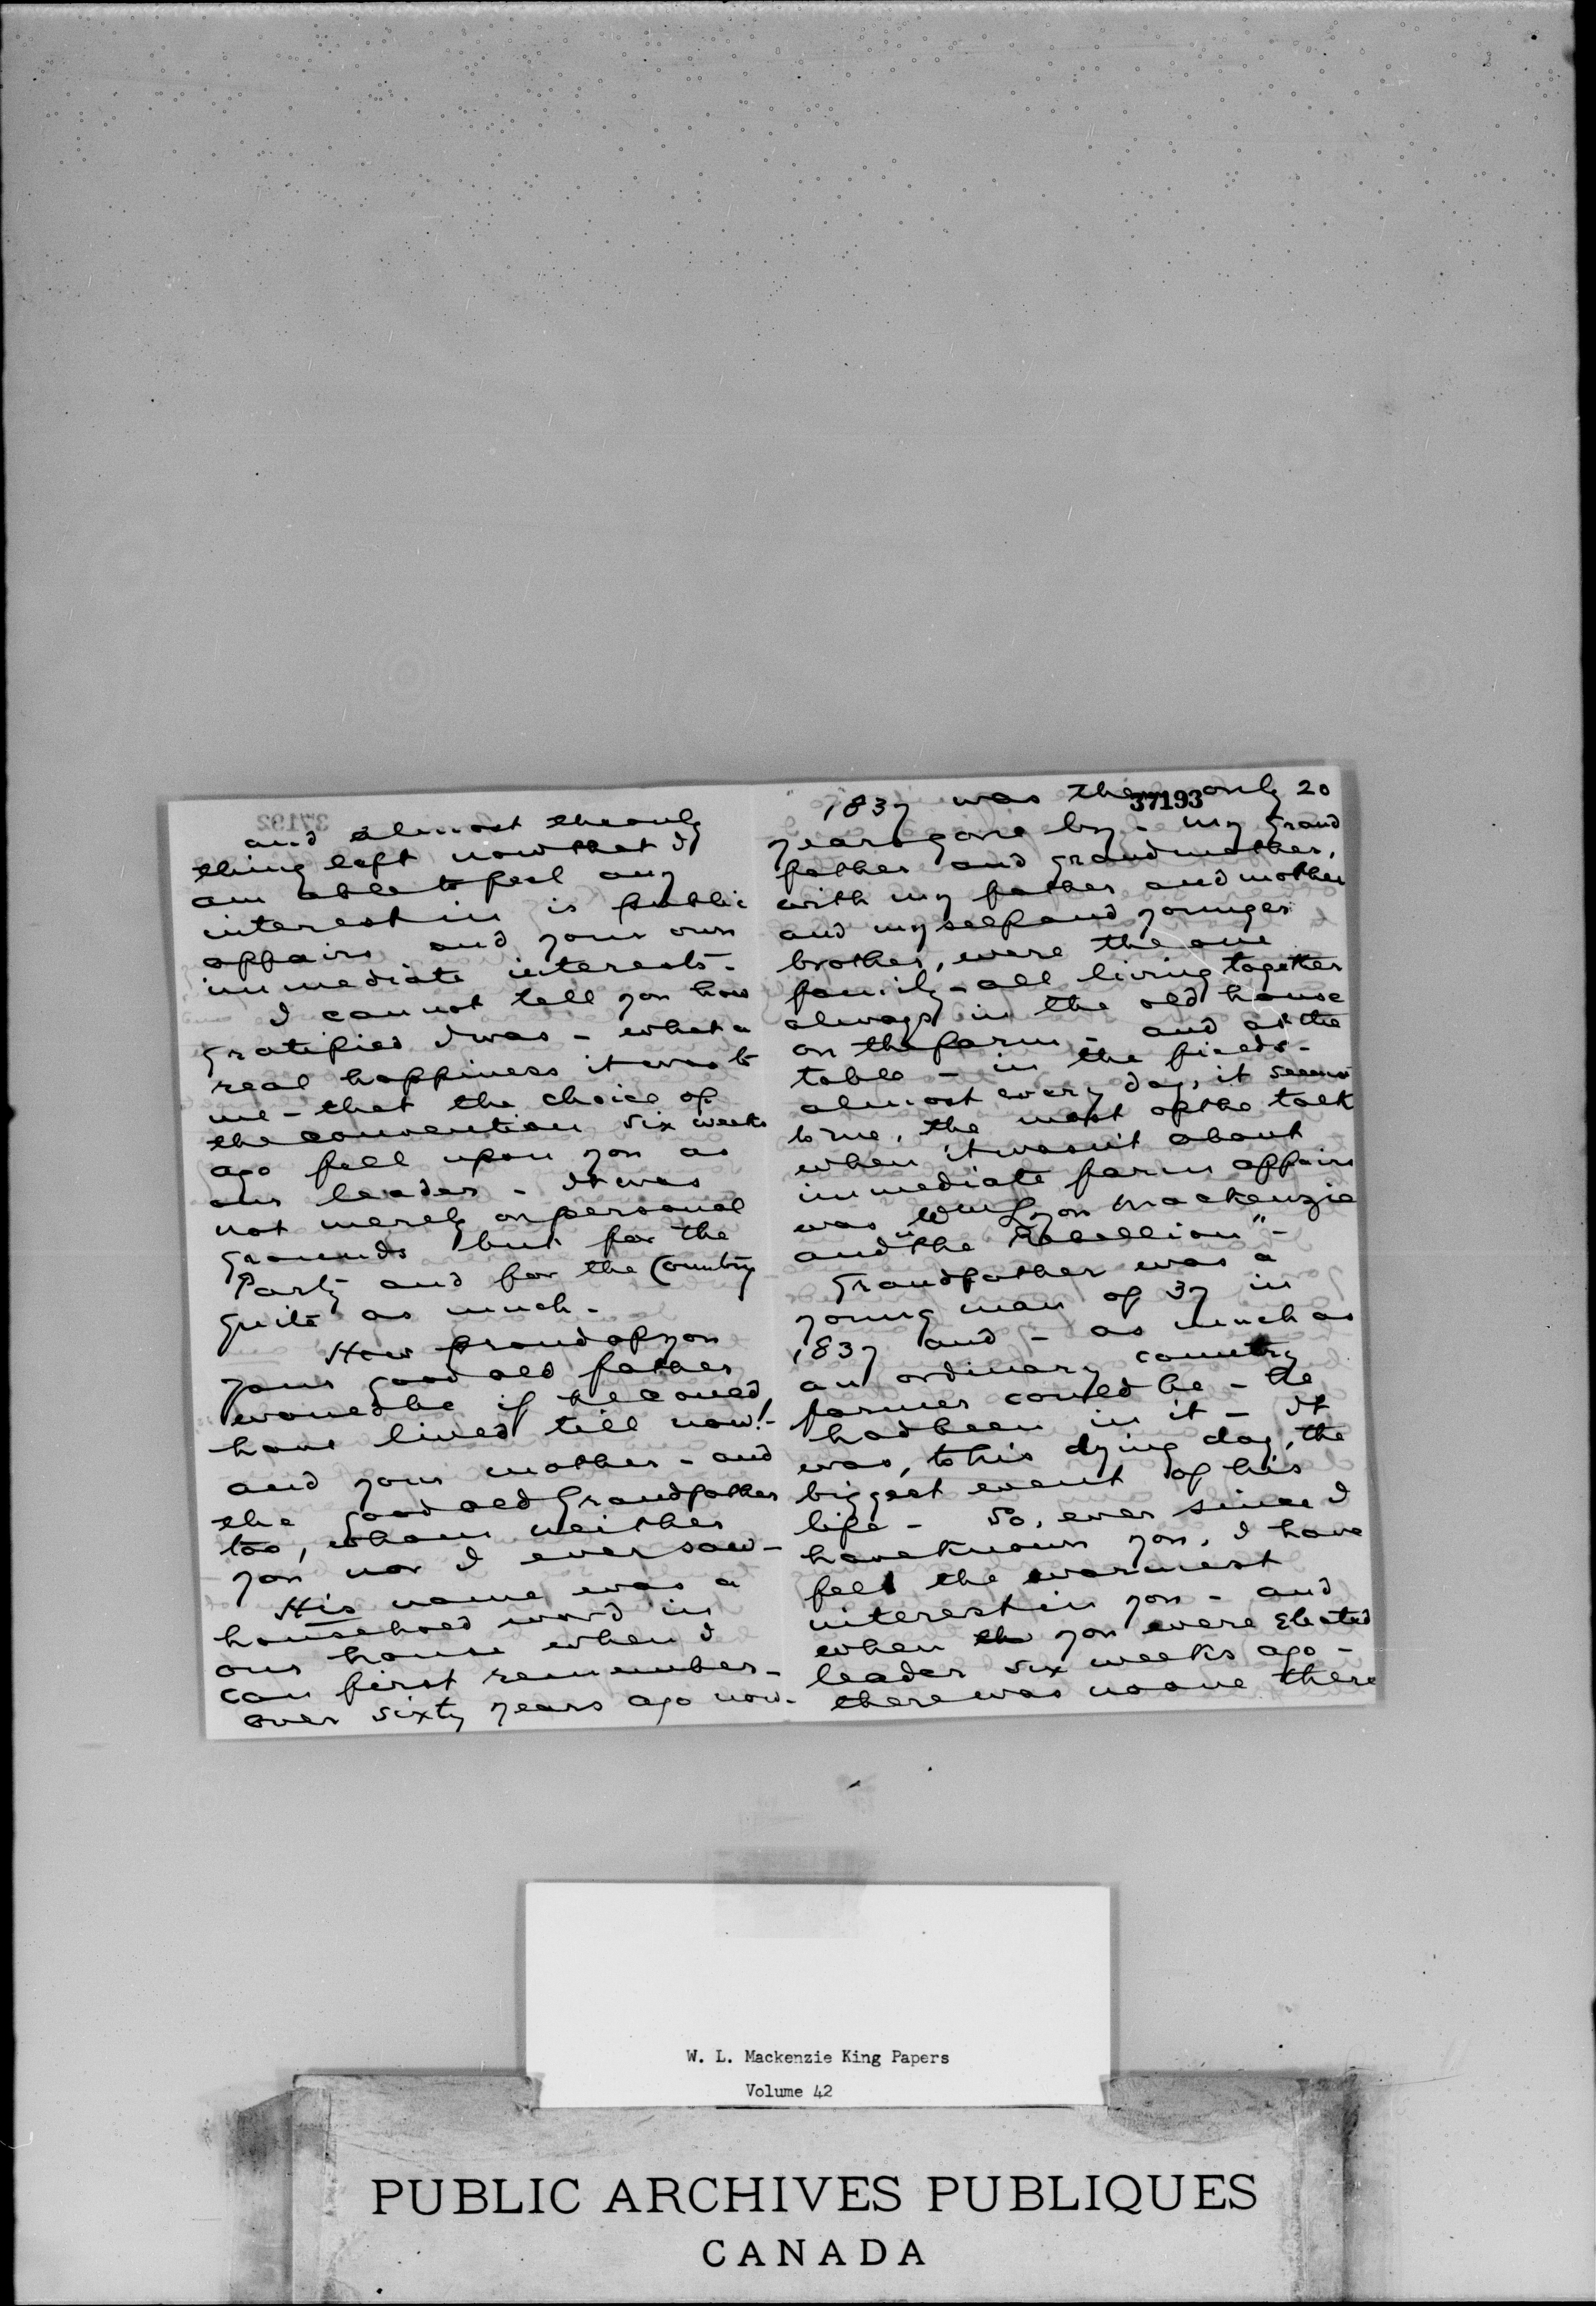 and almost the only
thing left now that I
am able to feel any
interest in is public
affairs and your own
immediate interests -
I cannot tell you how
gratified I was - what a
real happiness it was to
me - that the choice of
the convention six weeks
ago fell upon you as
our leader - It was
not merely on personal
grounds but for the
Party and for the Country
quite as much -
How proud of you
your good old father
would be if he could
have lived till now! -
and your mother - and
the good old Grandfather
too, whom neither
you nor I ever saw -
His name was a
household word in
our house when I
can first remember -
over sixty years ago now -
37193
1837 was then only 20
years gone by - my Grand
father and grandmother,
with my father and mother
and myself and younger
brother, were the one
family - all living together
always in the old house
on the farm - and at the
table - in the fields -
almost every day, it seems
to me, the most of the talk
when it wasn't about
immediate farm affairs
was "Wm Lyon Mackenzie
and "the Rebellion" -
Grandfather was a
young man of 37 in
1837 and - as much as
an ordinary country
farmer could be - he
had been in it - It
was, to his dying day, the
biggest event of his
life - So, ever since I
have known you, I have
felt the warmest
interest in you - and
when the you were Elected
leader six weeks ago -
there was no one there
W. L. Mackenzie King Papers
Volume 42
PUBLIC ARCHIVES PUBLIQUES
CANADA